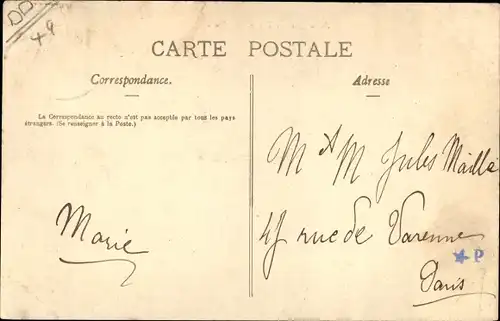 CARTE POSTALE
Correspondance.
La Correspondance au recto n'est pas acceptée par tous les pays
étrangers. (Se renseigner à la Poste.)
Marie
Adresse
M & M Jules Maille
45 rue de Varenne
P
Paris